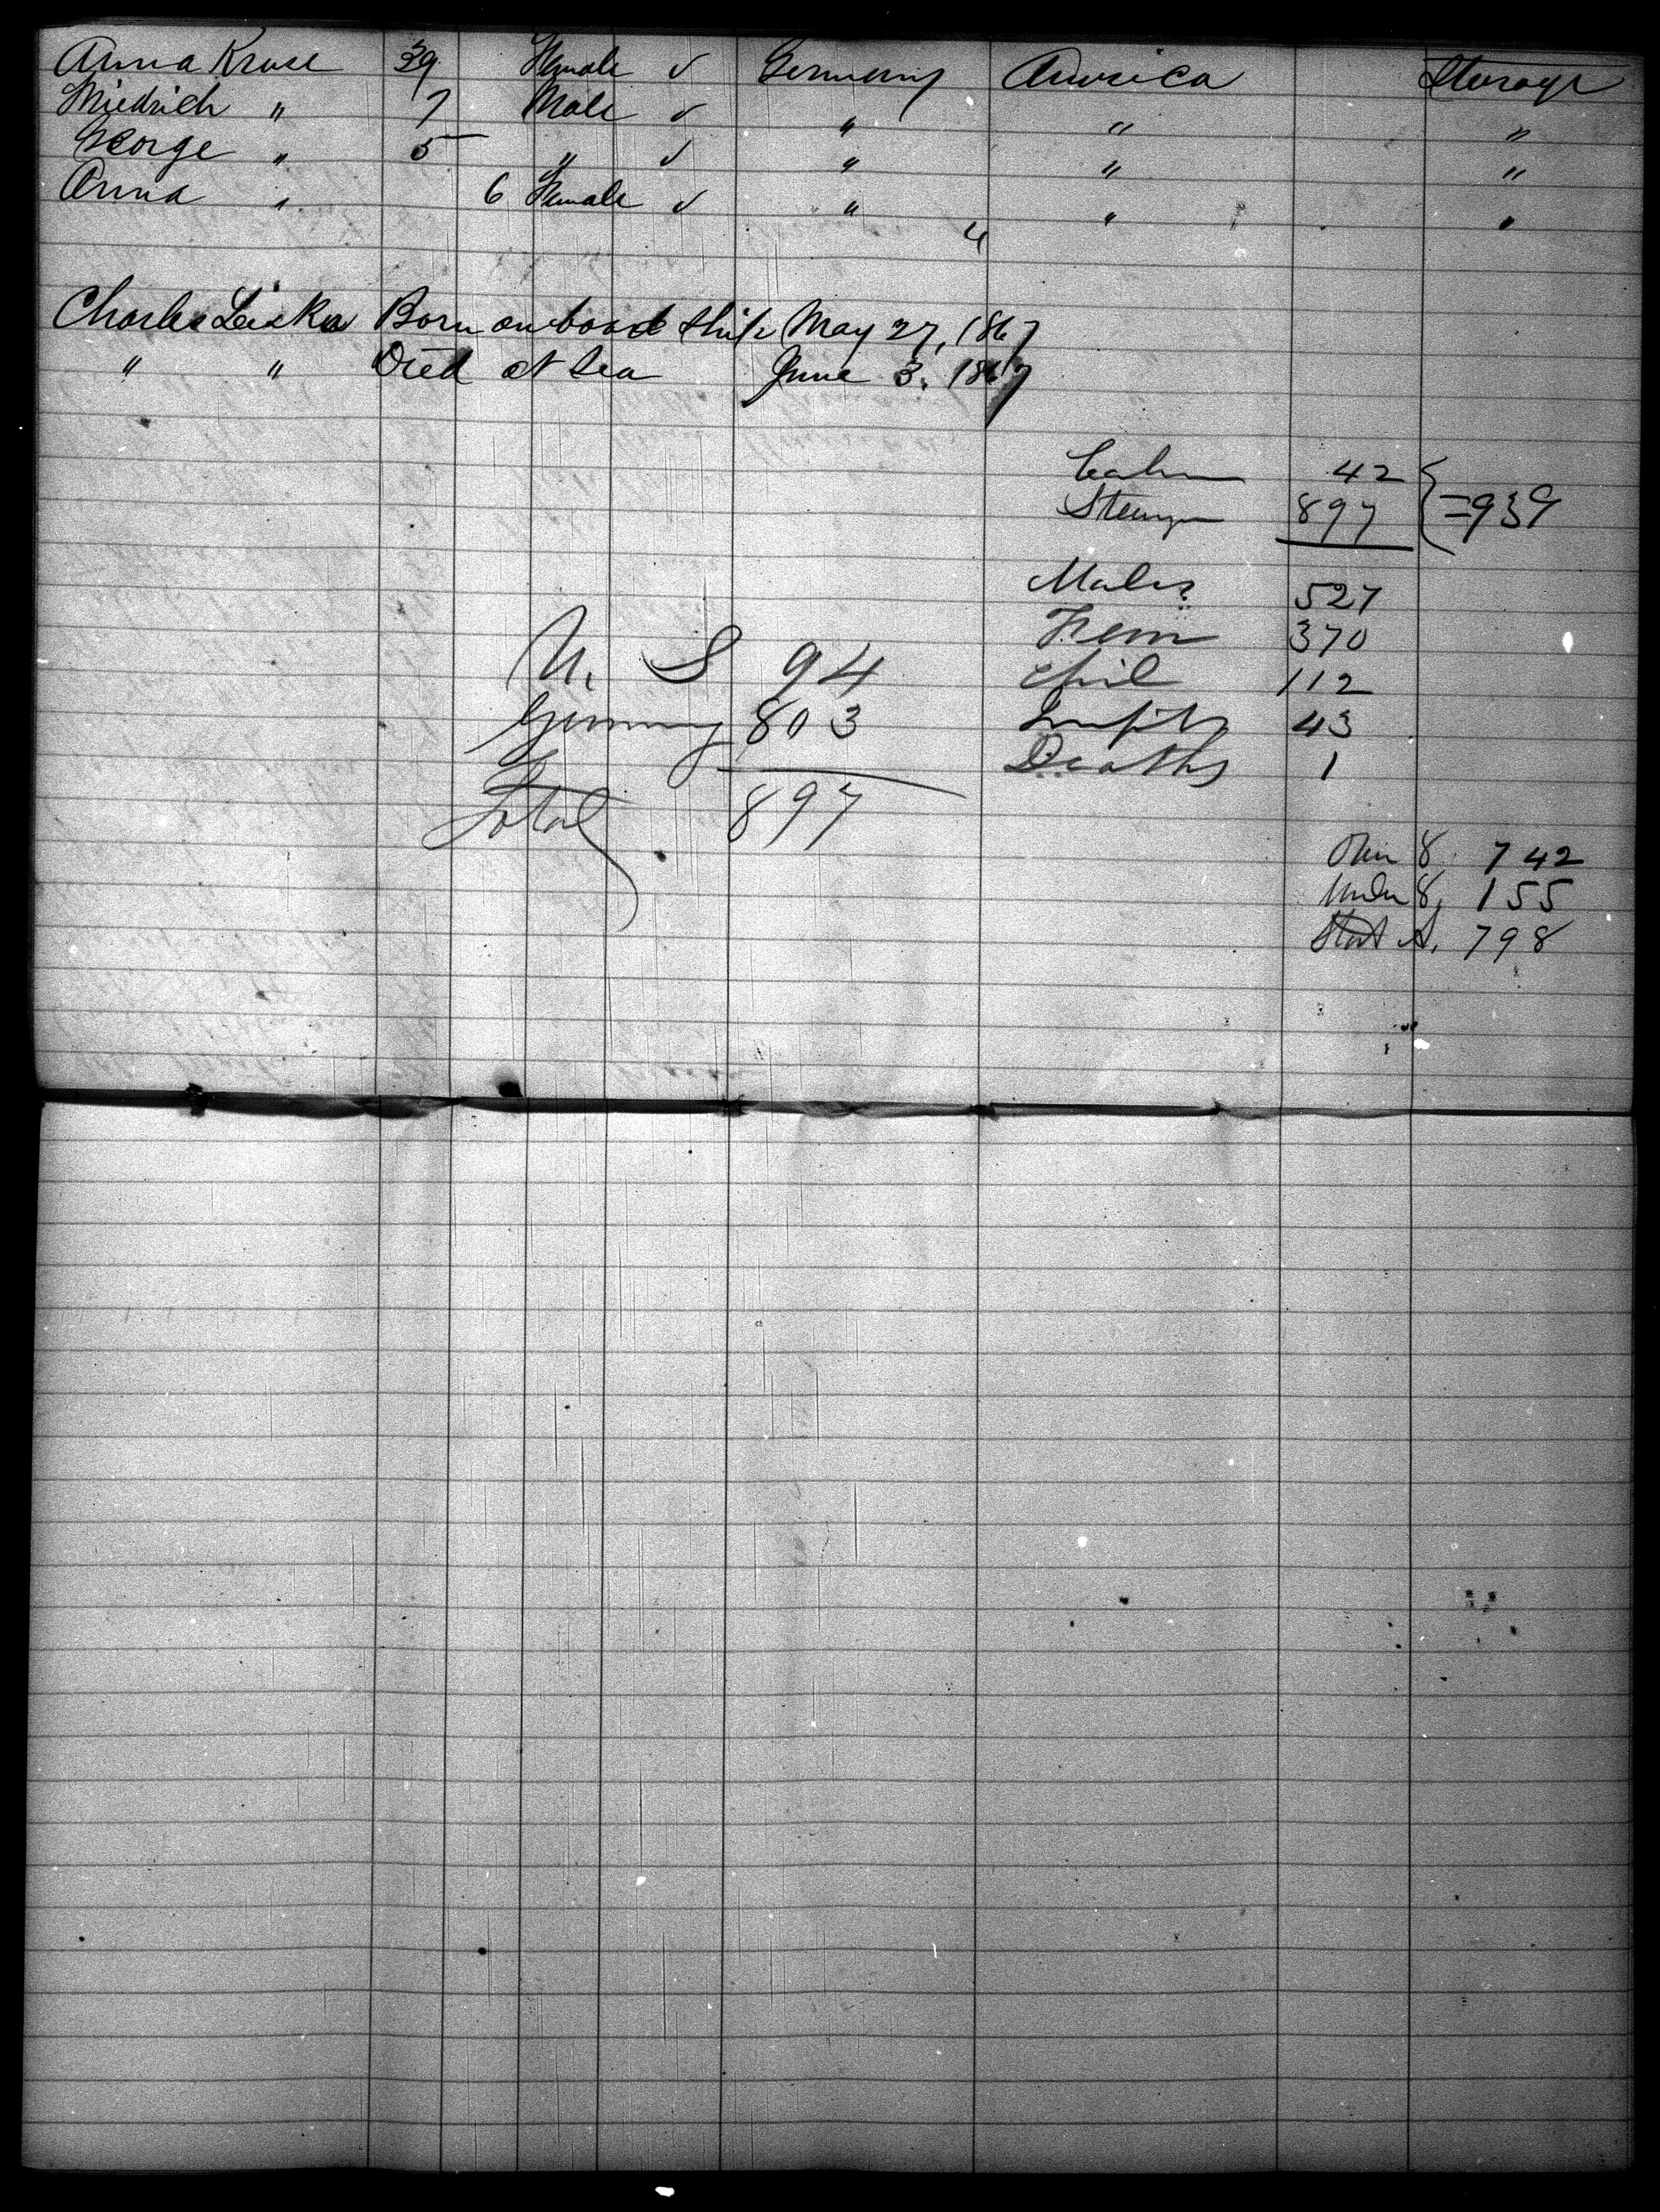 Anna Kruse 39 Female √ Germany America Steerage
Friedrich " 7 Male √ " " "
George " 5 " √ " " "
Anna " 6 Female √ " " "
4
Charles Leiska Born on board ship May 27, 1867
" " Died at Sea June 3. 1867
Cabin 42
Steerage 897 } =939
Males 527
Fem 370
U. S 94
Chil 112
Germany 803
Infts 43
Deaths 1
Total 897
Over 8 742
Under 8, 155
A. 798